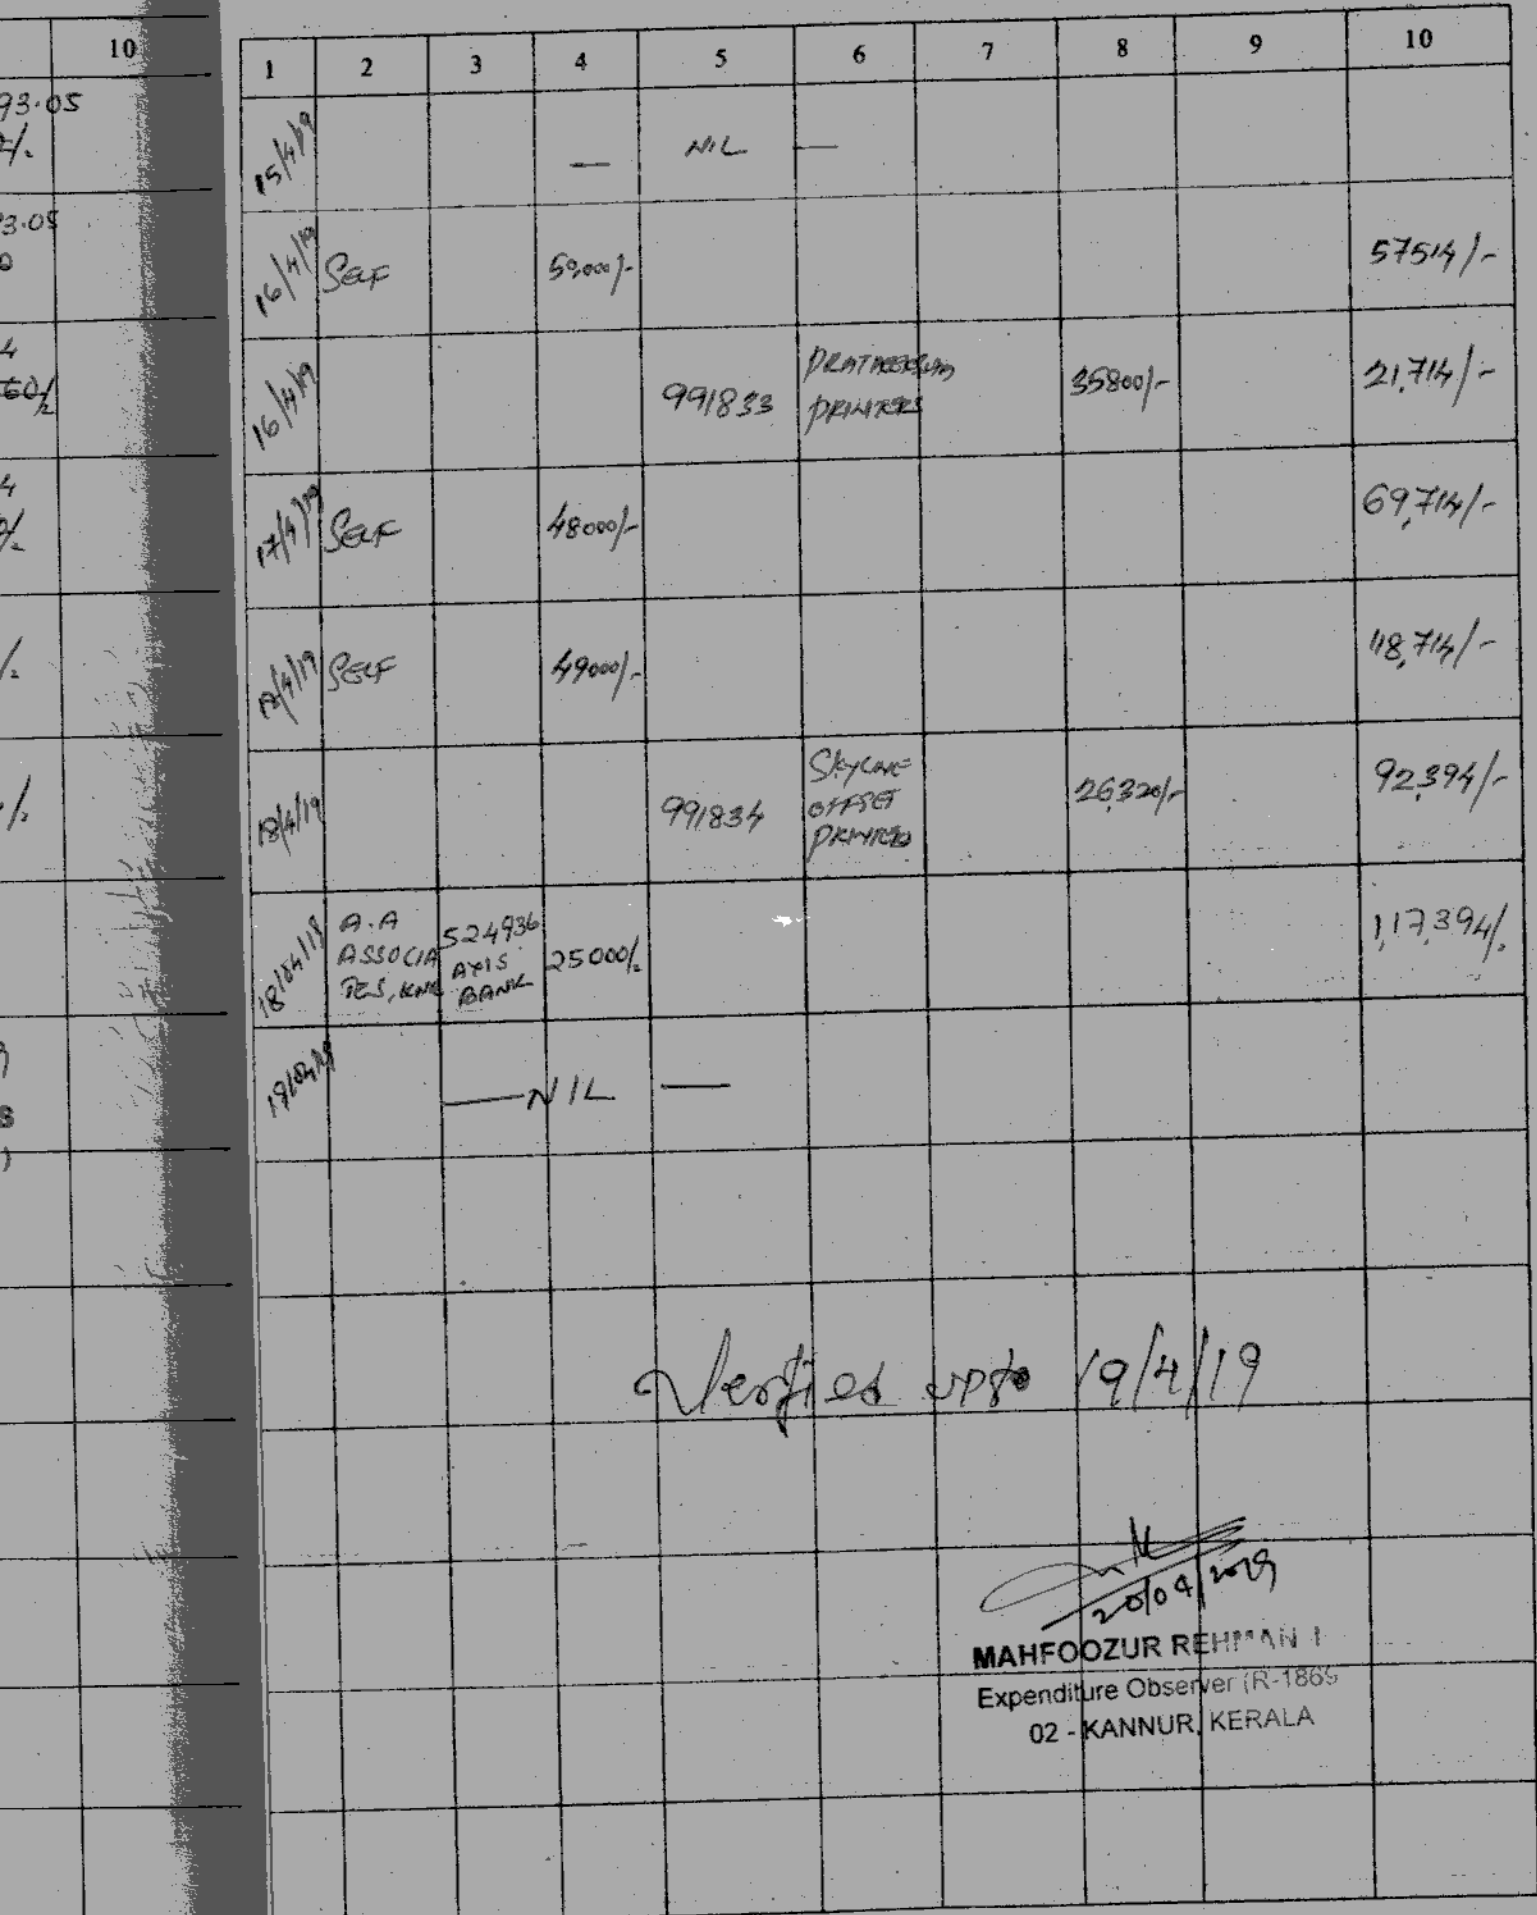 10
93.05
3.05
4
4
1 2 3 4 5 6 7 8 9 10
15/4/19 — NIL —
16/4/19 SELF 50,000/- 57514/-
16/4/19 991833 PRINTERS 35800/- 21,714/-
17/4/19 SELF 48000/- 69,714/-
SELF 49000/- 118,714/-
18/4/19 991834 SKYLINE OFFSET PRINTERS 26,320/- 92,394/-
A.A
ASSOCIA
TES, KNR
524936
AXIS
BANK
25000/.
1,17,394/.
19/04/19 — NIL —
Verified upto 19/4/19
20/04/2019
MAHFOOZUR REHMAN
Expenditure Observer (R-186
02 - KANNUR, KERALA